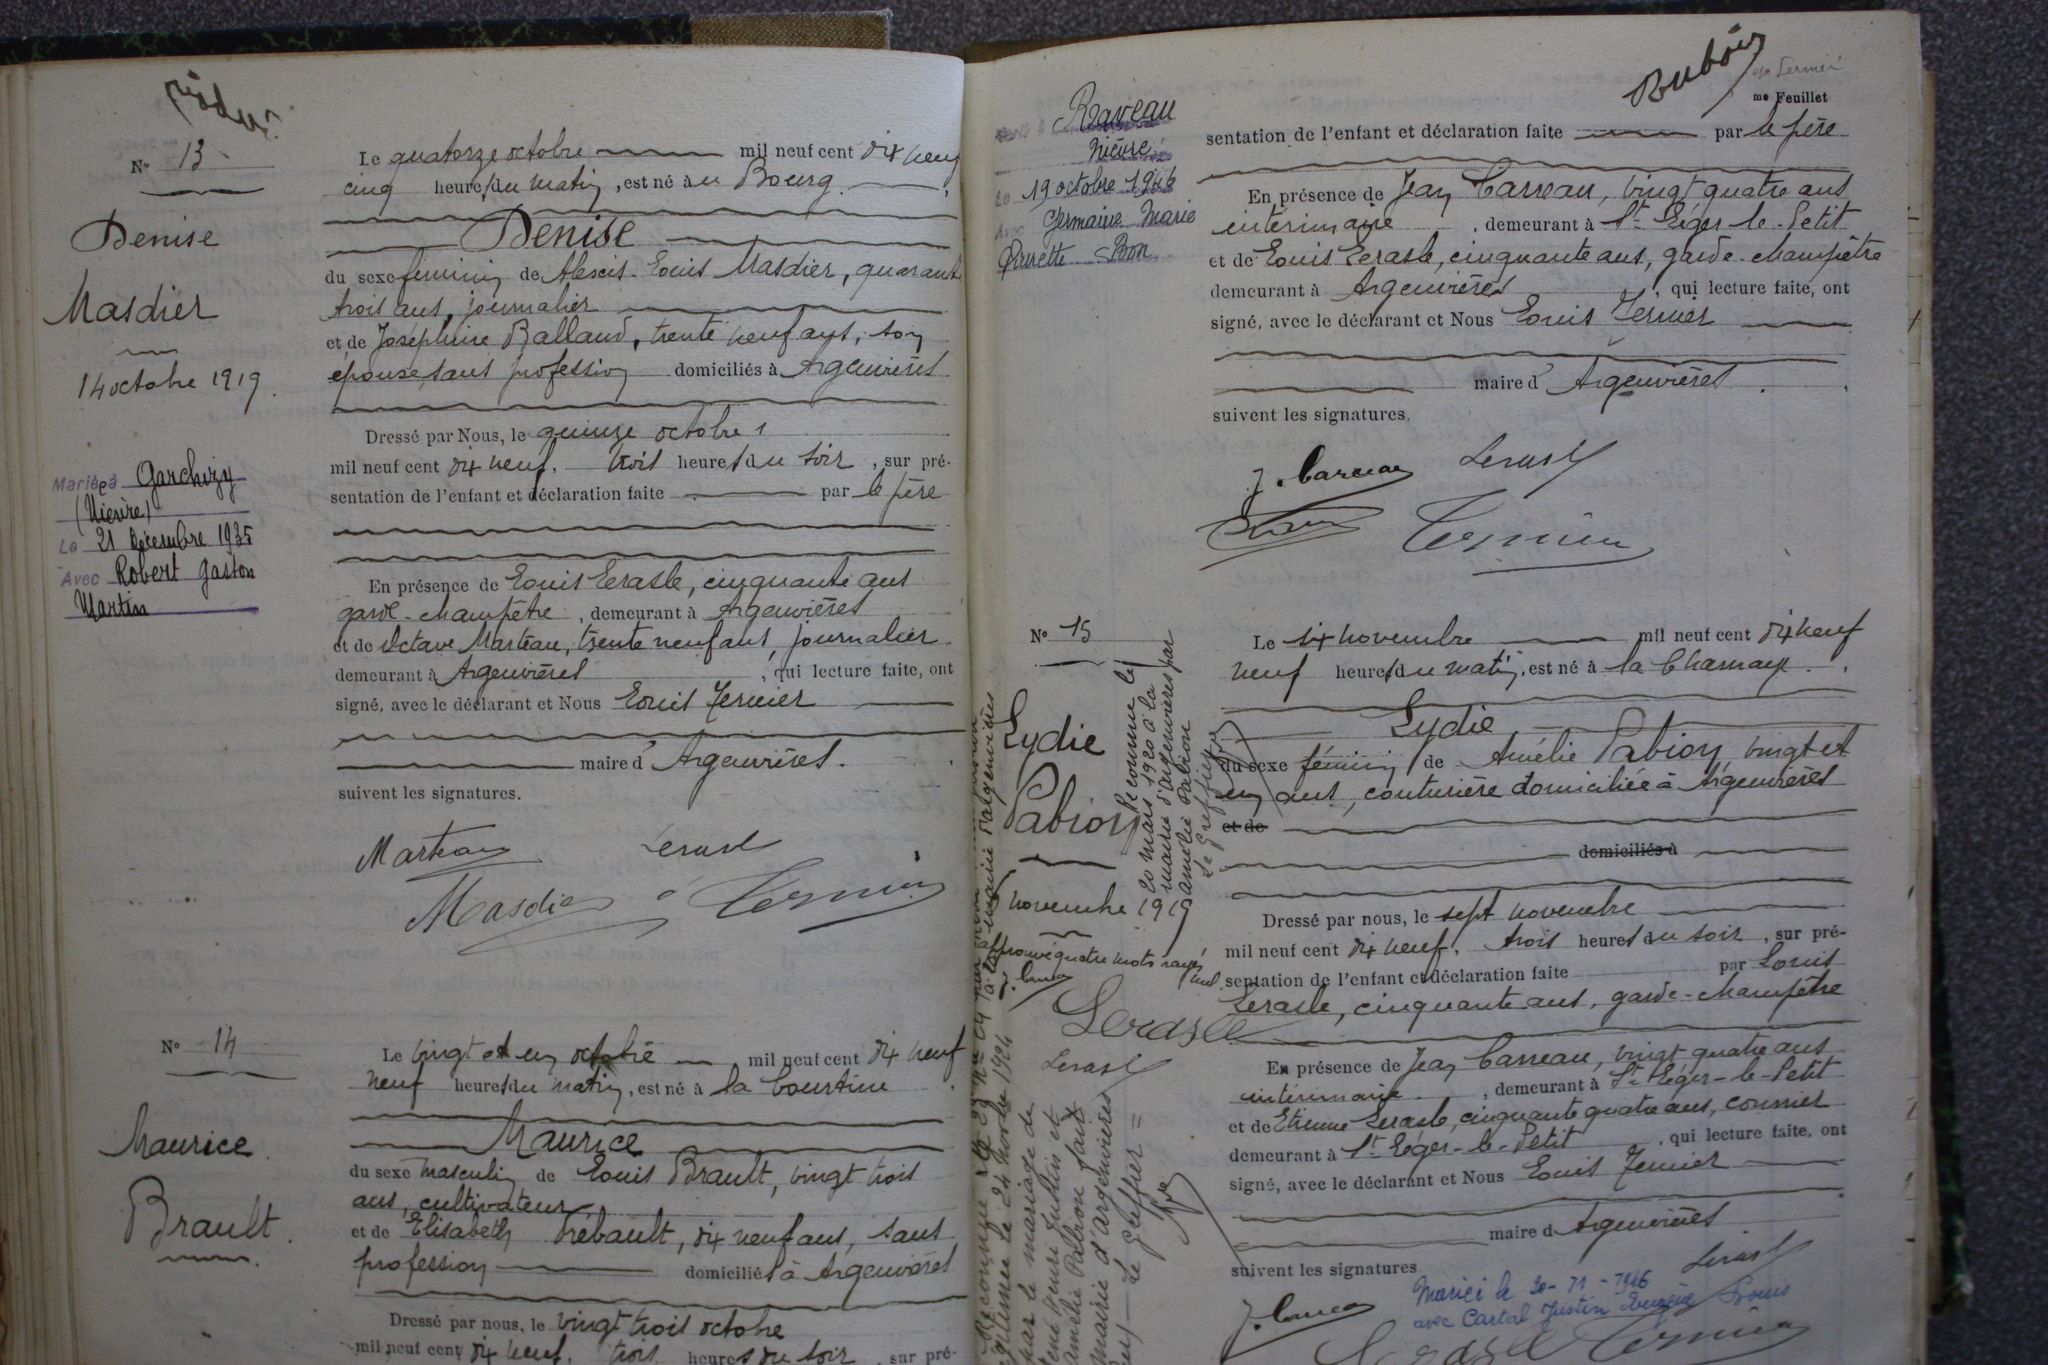 Nº 13
Denise
Masdier
14 octobre 1919
Mariée à Garchizy
(Nièvre)
Le 21 décembre 1935
Avec Robert Gaston
Martin
Le quatorze octobre mil neuf cent dix neuf
cinq heures du matin, est né à u Bourg.
Denise
du sexe féminin de Alexis Louis Masdier, quarante
trois ans, journalier
et de Joséphine Balland, trente neuf ans, son
épouse, sans profession domiciliés à Argenvières
Dressé par Nous, le quinze octobre
mil neuf cent dix neuf, trois heures du soir, sur pré-
sentation de l'enfant et déclaration faite par le père
En présence de Louis Lerasle, cinquante ans
garde-champêtre, demeurant à Argenvières
et de Octave Marteau, trente neuf ans, journalier
demeurant à Argenvières, qui lecture faite, ont
signé, avec le déclarant et Nous Louis Ternier
maire d'Argenvières.
suivent les signatures.
Marteau Lerasle
Masdier
Nº 14
Maurice
Brault.
Le vingt et un octobre mil neuf cent dix neuf
neuf heures du matin, est né à la Courtine
Maurice
du sexe masculin de Louis Brault, vingt trois
ans, cultivateur
et de Elisabeth Trébault, dix neuf ans, sans
profession domiciliés à Argenvières
Dressé par nous, le vingt trois octobre
mil neuf cent dix neuf, trois heures du soir, sur pré-
Raveau
Nièvre
Le 19 octobre 1946
Avec Germaine Marie
Pierrette Bon
me Feuillet
sentation de l'enfant et déclaration faite par le père
En présence de Jean Carreau, vingt quatre ans
intérimaire, demeurant à St Léger-le-Petit
et de Louis Lerasle, cinquante ans, garde-champêtre
demeurant à Argenvières, qui lecture faite, ont
signé, avec le déclarant et Nous Louis Ternier
maire d'Argenvières.
suivent les signatures.
J. Carreau Lerasle
Nº 15
Lydie
Pabion
6 novembre 1919
Approuvé quatre mots rayés
nul.
J. Carreau
Lerasle
Lerasle
Reconnue le
20 mars 1920 à la
mairie d'Argenvières par
Amélie Pabion
Le Greffier
Le six novembre mil neuf cent dix neuf
neuf heures du matin, est né à la Charnaye.
Lydie
du sexe féminin de Amélie Pabion, vingt et
un ans, couturière domiciliée à Argenvières
et de
domiciliés à
Dressé par nous, le sept novembre
mil neuf cent dix neuf, trois heures du soir, sur pré-
sentation de l'enfant et déclaration faite par Louis
Lerasle, cinquante ans, garde-champêtre
En présence de Jean Carreau, vingt quatre ans
intérimaire, demeurant à St Léger-le-Petit
et de Etienne Lerasle, cinquante quatre ans, courrier
demeurant à St Léger-le-Petit, qui lecture faite, ont
signé, avec le déclarant et Nous Louis Ternier
maire d'Argenvières
suivent les signatures
J. Carreau Lerasle
Mariée le 20-11-1946
avec Cartal Justin Eugène Louis